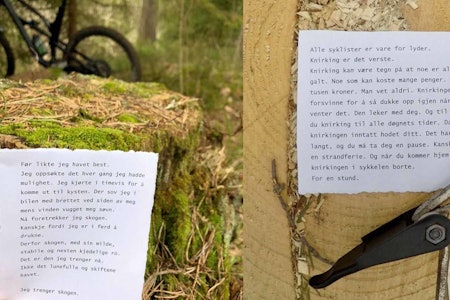 Før likte jeg havet best.
Jeg oppsøkte det hver gang jeg hadde
mulighet. Jeg kjørte i timevis for å
komme ut til kysten. Der sov jeg i
bilen med brettet ved siden av meg
mens vinden vugget meg søvn.
Nå foretrekker jeg skogen.
Kanskje fordi jeg er i ferd å
drukne.
Derfor skogen, med sin milde,
stabile og nesten kjedelige ro.
Det er den jeg trenger nå.
Ikke det lunefulle og skiftene
havet.
Jeg trenger skogen.
Alle syklister er vare for lyder.
Knirking er det verste.
Knirking kan være tegn på at noe er al
galt. Noe som kan koste mange penger.
tusen kroner. Man vet aldri. Knirkingen
forsvinne for så dukke opp igjen når
venter det. Den leker med deg. Og til
du knirking til alle døgnets tider. Da
knirkingen inntatt hodet ditt. Det har
langt, og du må ta deg en pause. Kansk
en strandferie. Og når du kommer hjem
knirkingen i sykkelen borte.
For en stund.